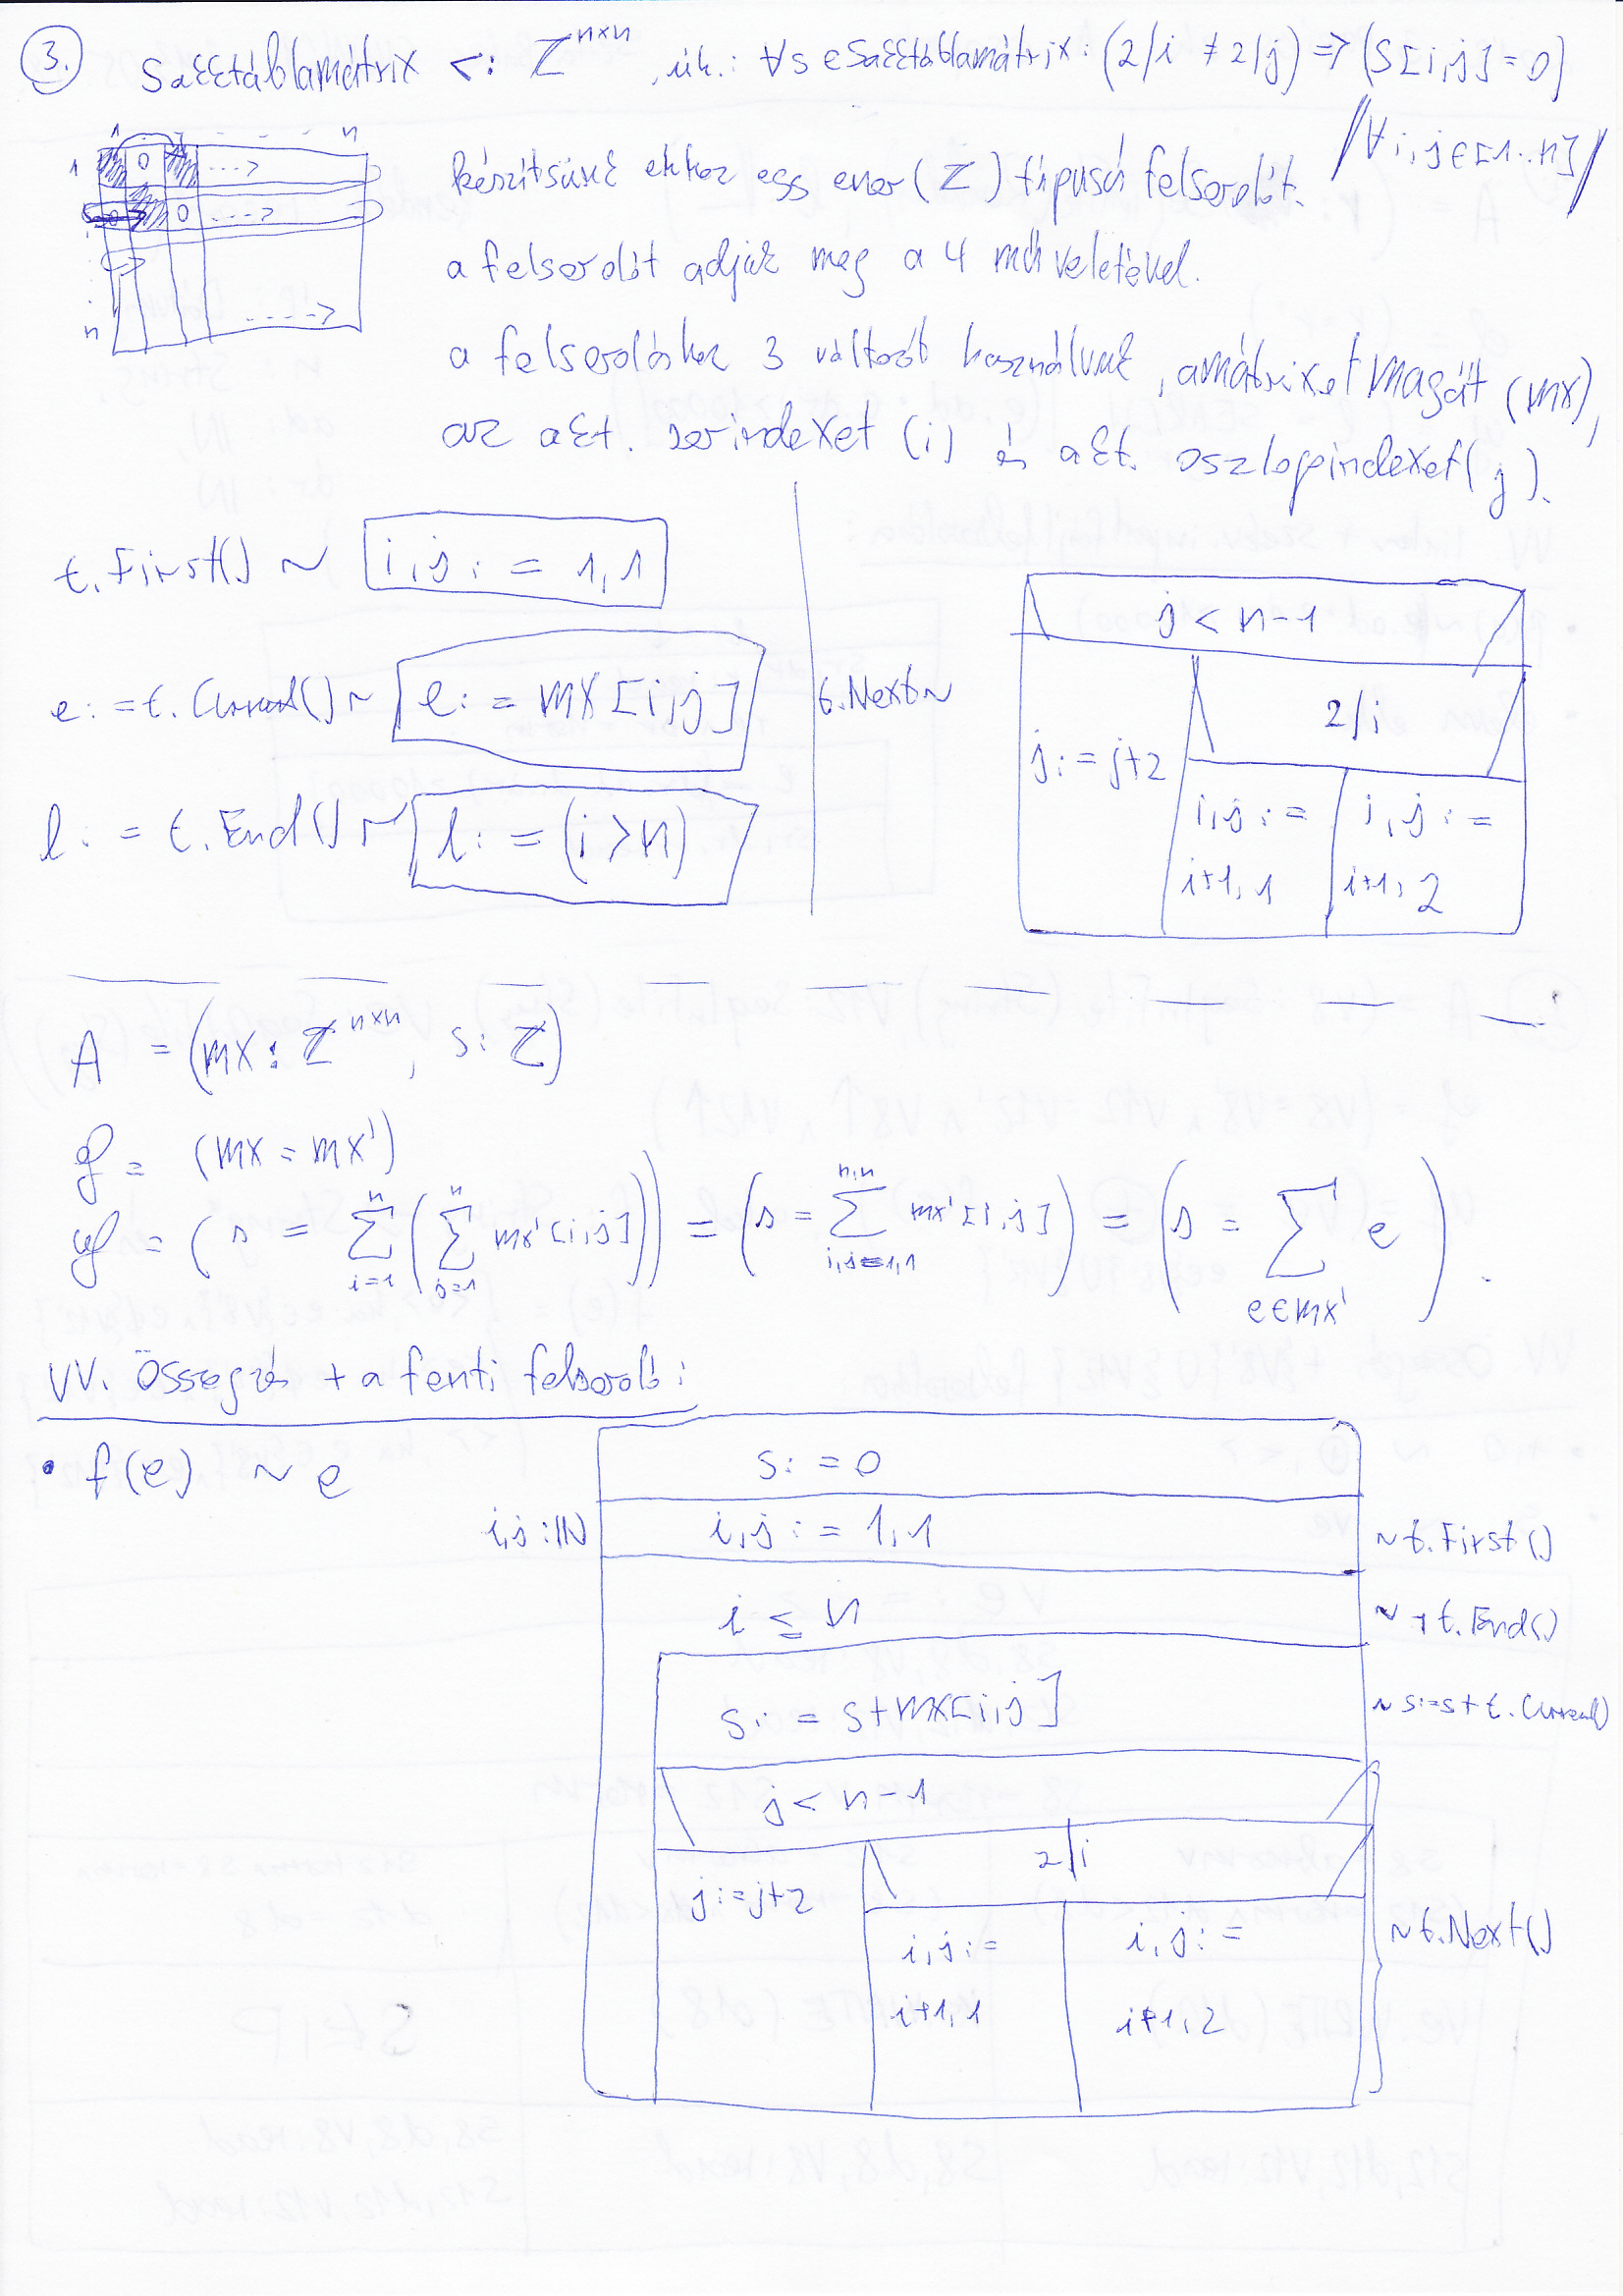 3.
Sakktáblamátrix <: ℤ^n×n, úh.: ∀s∈Sakktáblamátrix: (2∤i ≠ 2|j) => (s[i,j] = 0)
/∀i,j∈[1..n]/
1 n
1 0 ...>
0 0 ...>
n ...>
készítsünk ehhez egy enor(ℤ) típusú felsorolót.
a felsorolót adjuk meg a 4 műveletével.
a felsoroláshoz 3 változót használunk, a mátrixet magát (mx),
az akt. sorindexet (i) és akt. oszlopindexet (j).
t.First() ~ i,j := 1,1
e := t.Current() ~ e := mx[i,j]
l := t.End() ~ l := (i>n)
t.Next ~
j < n-1
j := j+2
2|i
i,j := i+1, 1
i,j := i+1, 2
A = (mx: ℤ^n×n, s: ℤ)
ef = (mx = mx')
uf = (s = ∑_{i=1}^{n} (∑_{j=1}^{n} mx'[i,j])) = (s = ∑_{i,j=1,1}^{n,n} mx'[i,j]) = (s = ∑_{e∈mx'} e).
VV. Összegzés + a fenti felsoroló:
• f(e) ~ e
s := 0
i,j:ℕ i,j := 1,1 ~ t.First()
i ≤ n ~ ¬t.End()
s := s+mx[i,j] ~ s:=s+t.Current()
j < n-1
j := j+2
2|i
i,j := i+1, 1
i,j := i+1, 2
~ t.Next()